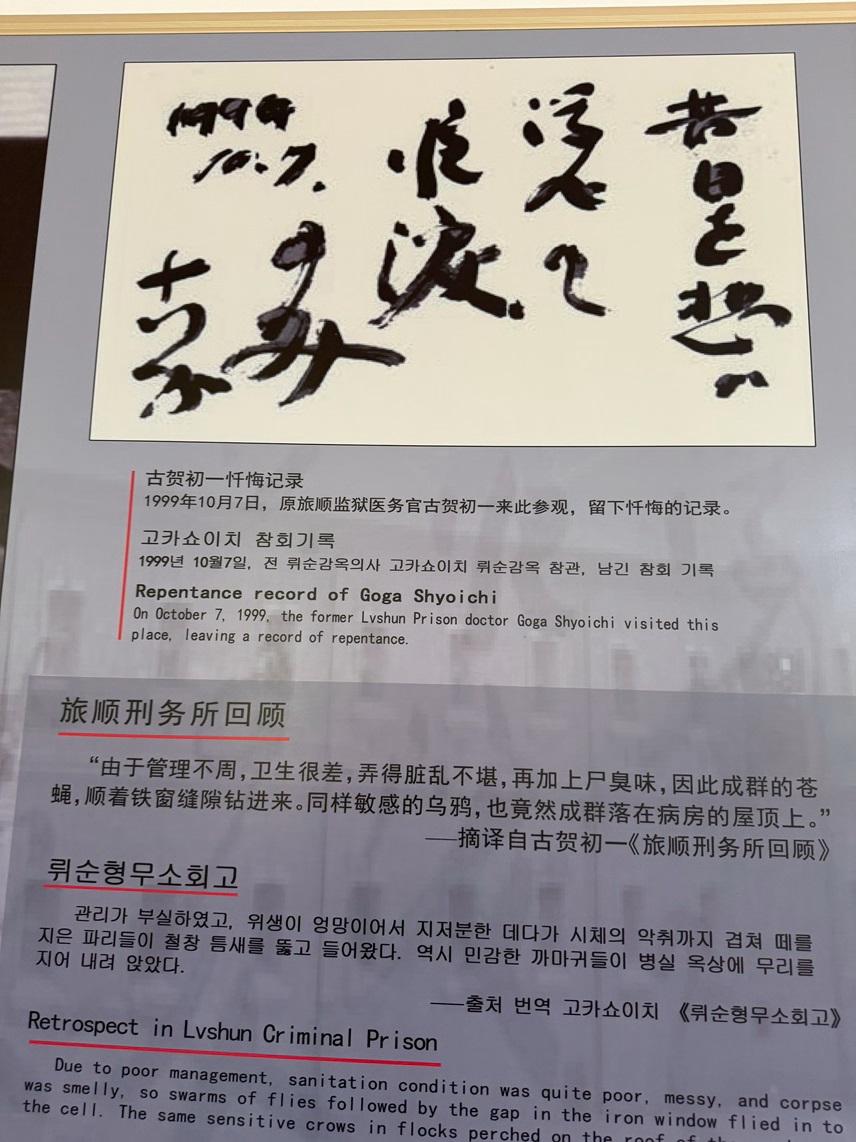 昔日を想い
浮べて
唯涙.
10.7.
古贺初一忏悔记录
1999年10月7日，原旅顺监狱医务官古贺初一来此参观，留下忏悔的记录。
고카쇼이치 참회기록
1999년 10월7일, 전 뤼순감옥의사 고카쇼이치 뤼순감옥 참관, 남긴 참회 기록
Repentance record of Goga Shyoichi
On October 7, 1999, the former Lvshun Prison doctor Goga Shyoichi visited this
place, leaving a record of repentance.
旅顺刑务所回顾
“由于管理不周，卫生很差，弄得脏乱不堪，再加上尸臭味，因此成群的苍
蝇，顺着铁窗缝隙钻进来。同样敏感的乌鸦，也竟然成群落在病房的屋顶上。”
——摘译自古贺初一《旅顺刑务所回顾》
뤼순형무소회고
관리가 부실하였고, 위생이 엉망이어서 지저분한 데다가 시체의 악취까지 겹쳐 떼를
지은 파리들이 철창 틈새를 뚫고 들어왔다. 역시 민감한 까마귀들이 병실 옥상에 무리를
지어 내려 앉았다.
——출처 번역 고카쇼이치 《뤼순형무소회고》
Retrospect in Lvshun Criminal Prison
Due to poor management, sanitation condition was quite poor, messy, and corpse
was smelly, so swarms of flies followed by the gap in the iron window flied in to
the cell. The same sensitive crows in flocks perched on the roof of